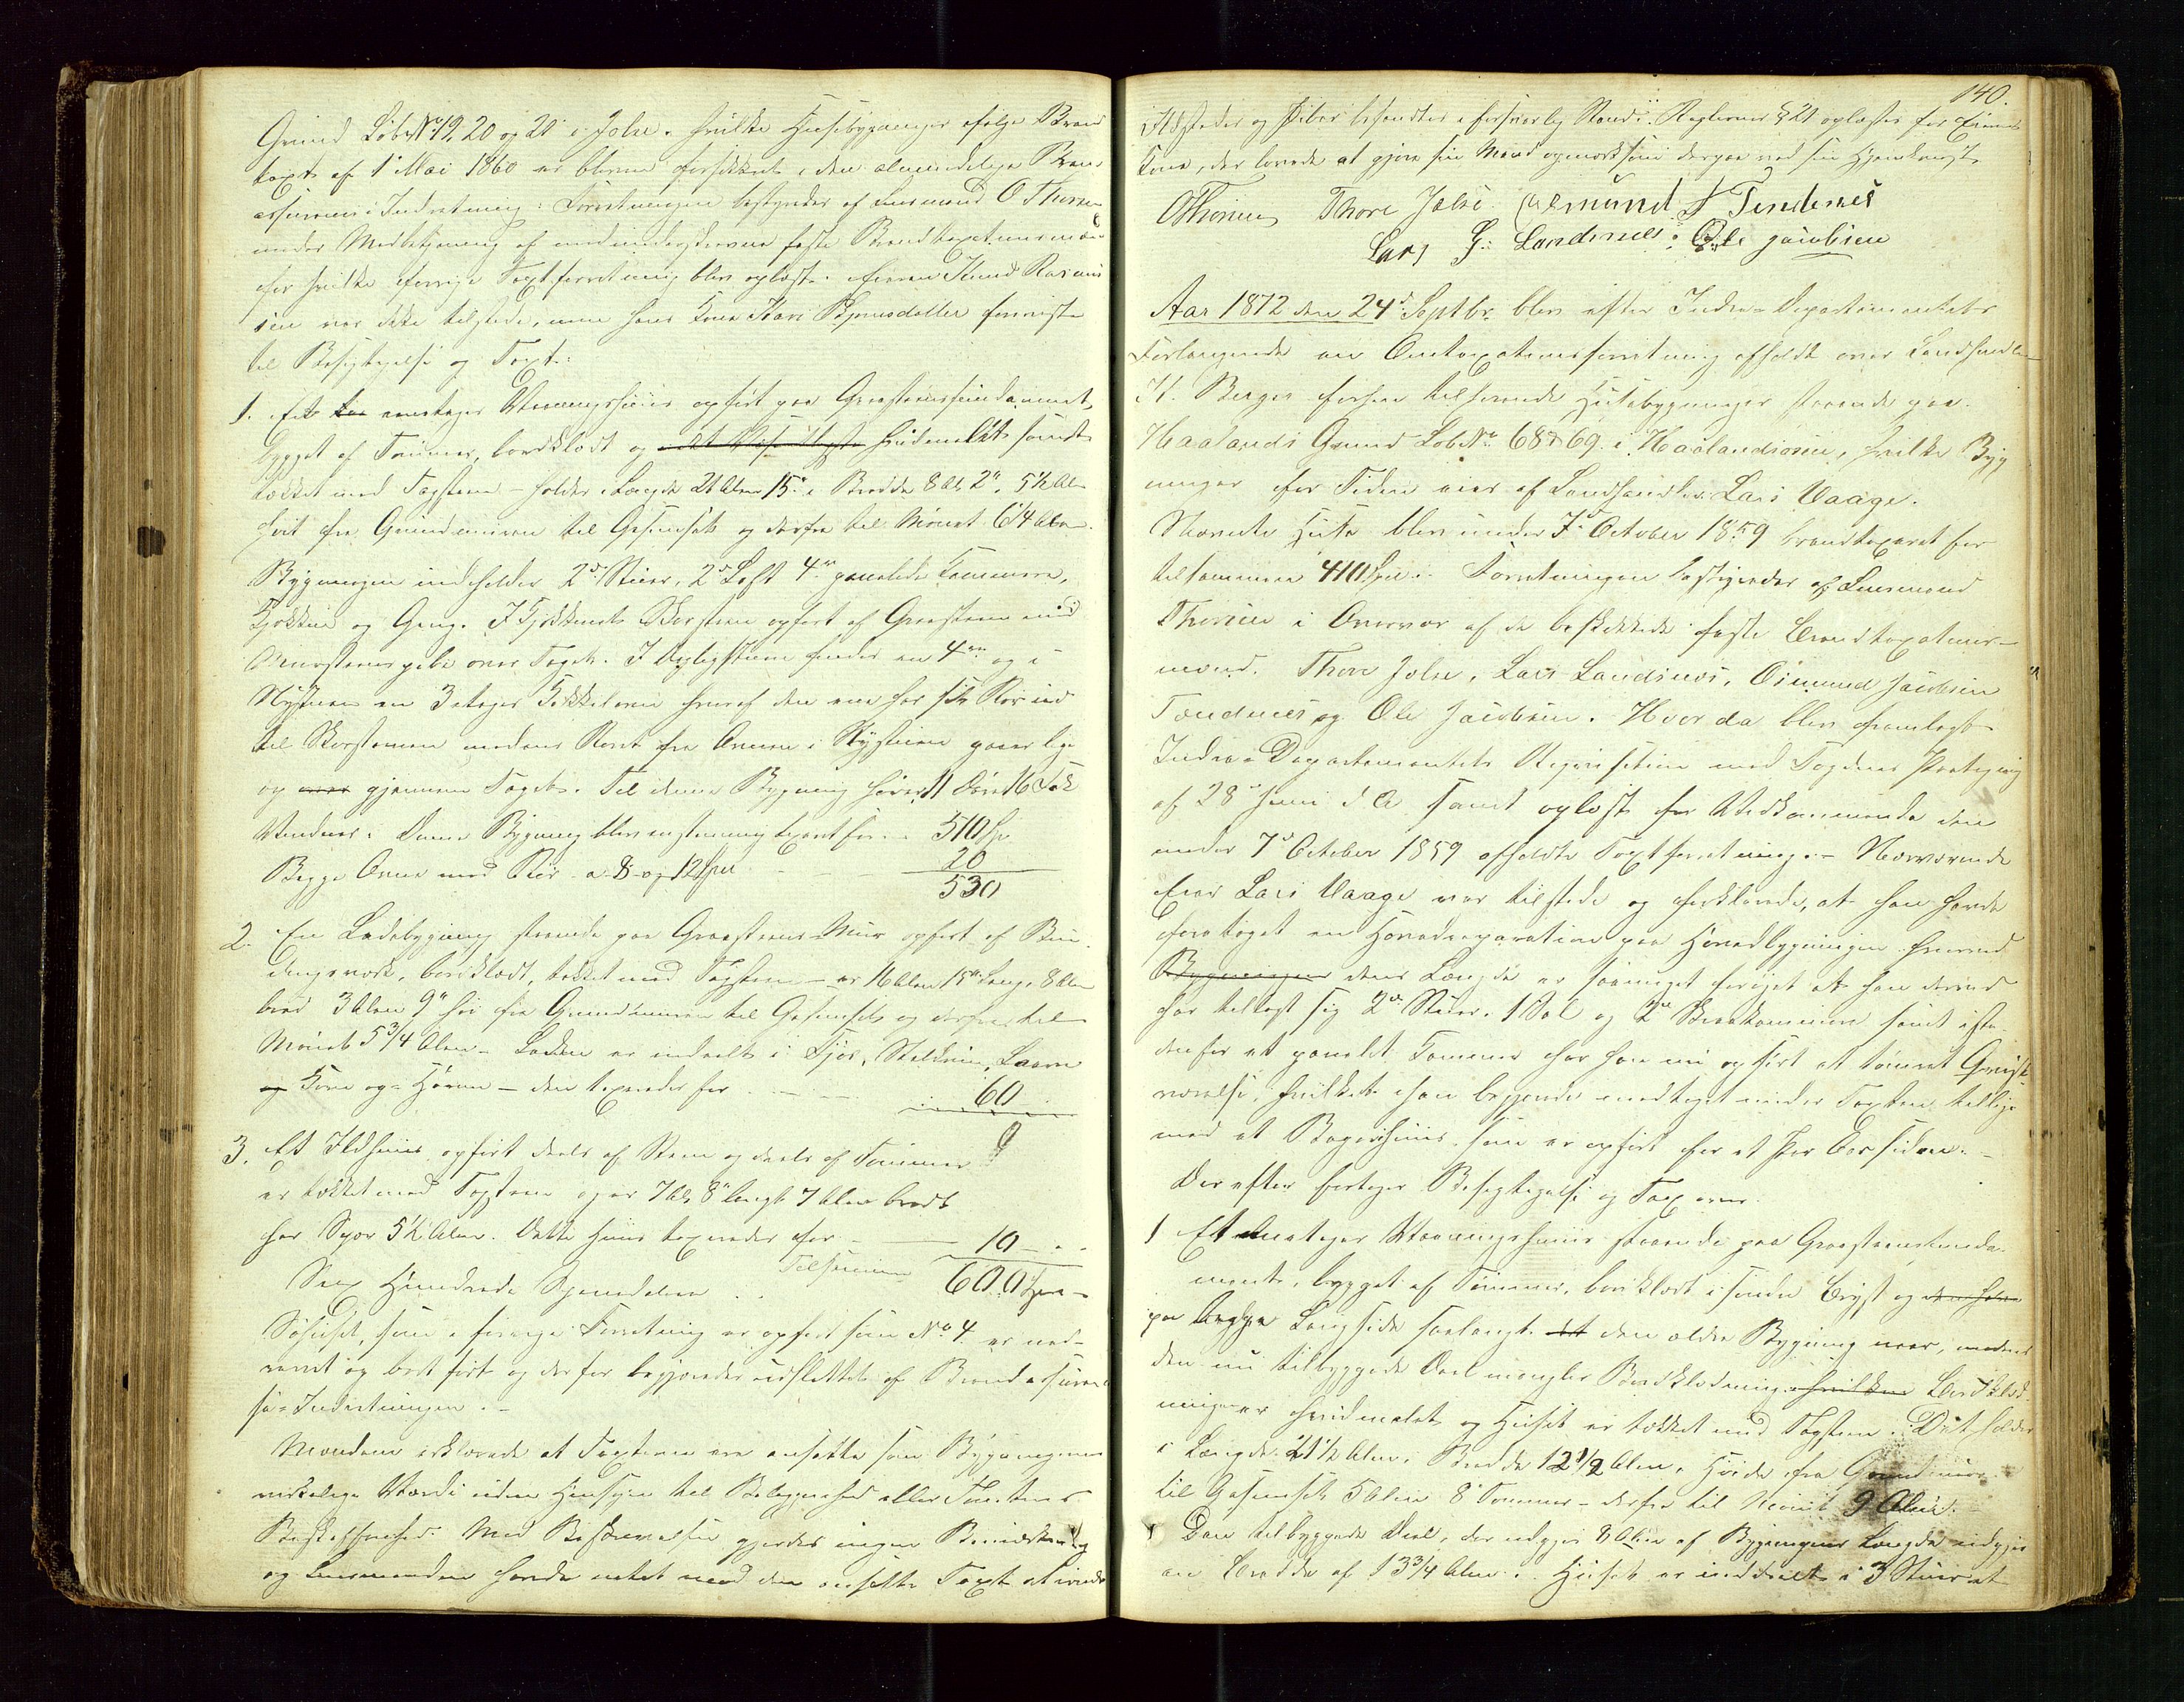 Grund Løb No 19, 20 og 21 i Jelse. hvilke Huusebygninger ifølge Brand
taxt af 1 Mai 1860 er bleven forsikkret i den almindelige Brand
assurance Indretning: Forretningen bestyredes af Lensmand O Thorsen
under Medbetjening af medunderskrevne faste Brandtaxationsmænd
for hvilke forrige Taxtforretning blev oplæst. Eieren Knud Rasmus
sen var ikke tilstede, men hans Kone Kari fremviste
til Besigtigelse og Taxt:
1. Et toetages Vaaningshuus opført paa Graasteensfundament,
bygget af Tømmer, bordklædt og hvidmalet samt
tækket med Tagsteen - holder i Længde 21 Alen 15" i Bredde 8 Al. 2", 5½ Alen
høit fra Grundmuren til Gesimset og derfra til Mønet 6¼ Alen.
Bygningen indeholder 2de Stuer, 2de Loft 4re panelede Kammere,
Kjøkken og Gang. I Kjøkkenet Skorsteen opført af Graasteen med
Muursteenspibe over Taget. I Dagligstuen findes en 4re og i
Nystuen en 3 etages Kakkelovn hvoraf den ene har sit Rør ind
til Skorstenen medens Røret fra Ovnen i Nystuen gaaer lige
op gjennem Taget. Til denne Bygning hører 11 Døre 16 Fak
Vinduer. Denne Bygning blev enstemmig taxeret for 510 Sp.
Begge Ovne med Rør a 8 og 12 Spd 20
530
2. En Ladebygning staaende paa Graasteens Muur opført af Bin
dingsværk, bordklædt, tækket med Tagsteen - er 16 Alen 15" lang, 8 Alen
bred 3 Alen 9" høi fra Grundmuren til Gesimset og derfra til
Mønet 5¾ Alen - Laden er indrettet i Fjøs, Staldrum, Laave
og Korn og Hørum - den taxeredes for 60
3. Et Ildhuus opført deels af Steen og deels af Tømmer
er tækket med Tagsteen og er 7 Al. 8" langt 7 Alen bredt
har Spær 5½ Alen. Dette Huus taxeredes for 10
Tilsammen 600 Spd
Sex Hundrede Speciedaler
Søhuset, som i forrige Forretning er opført som No 4 er ned-
revet og bortført og derfor begjæredes udslettet af Brandassuran
se Indretningen.
Mændene erklærede at Taxterne ere ansatte som Bygningernes
virkelige Værdi uden Hensyn til Beliggenhed eller Tomtens
Beskaffenhed. Mod Beskrivelsen gjordes ingen Bemærkning
og Lensmanden havde intet mod den ansatte Taxt at erindre
140.
Ildsteder og Piber befandtes i forsvarlig Stand. Reglerne § 21 oplæstes for Eierens
Kone, der lovede at gjøre sin Mand opmærksom derpaa ved sin Hjemkomst.
OThorsen Thore Jelse Osmund J Tendenes
Lars G: Landsnes: Ole Jacobsen
Aar 1872 den 24de Septbr. blev efter Indre-Departementets
Forlangende en Omtaxationsforretning afholdt over Landhandler
H. Berges forhen tilhørende Huusebygninger staaende paa
Haalands Grund Løb No 68 & 69 i Haalandsosen, hvilke Byg
ninger for Tiden eies af Landhandler Lars Vaage.
Nævnte Huse blev under 7de October 1859 brandtaxeret for
tilsammen 410 Spd. Forretningen bestyredes af Lensmand
Thorsen i Overvær af de beskikkede faste Brandtaxations-
mænd. Thore Jelse, Lars Landsnes, Osmund Jacobsen
Tendenes og Ole Jacobsen. Hvor da blev fremlagt
Indre-Departementets Reqvisition med Fogdens Paategning
af 28 Juni d A samt oplæst for Vedkommende den
under 7de October 1859 afholdte Taxtforretning. - Nærværende
Eier Lars Vaage var tilstede og forklarede, at han havde
foretaget en Hovedreparation paa Hovedbygningen hvorved
Bygningen dens Længde er saameget forøget at han derved
har tillagt sig 2de Stuer, 1 Sal og 2de Kammere samt isteden
derfor et panelet Kammer har han nu opført et tømret
værelse, hvilket han begjærede medtaget under Taxten tillige
med et Bageshuus som er opført for et Par Aar siden.
Derefter foretoges Besigtigelse og Taxeres:
1 Et toetages Vaaningshuus staaende paa Graasteensfunda-
ment, bygget af Tømmer, bordklædt i søndre Bryst og
paa begge Langside saalangt den ældre Bygning naar, medens
den nu tilbyggede Deel mangler Bordklædning. Bordklæd
ningen er hvidmalet og Huset er tækket med Tagsteen. Det holder
i Længde 21½ Alen. Bredde 12½ Alen. Høide fra Grundmuren
til Gesimset 5 Alen 8 Tommer - derfra til Mønet 9 Alen.
Den tilbyggede Deel, der udgjør 8 Alen af Bygningens Længde udgjør
en Bredde af 13¾ Alen. Huset er inddeelt i 3 Stuer et